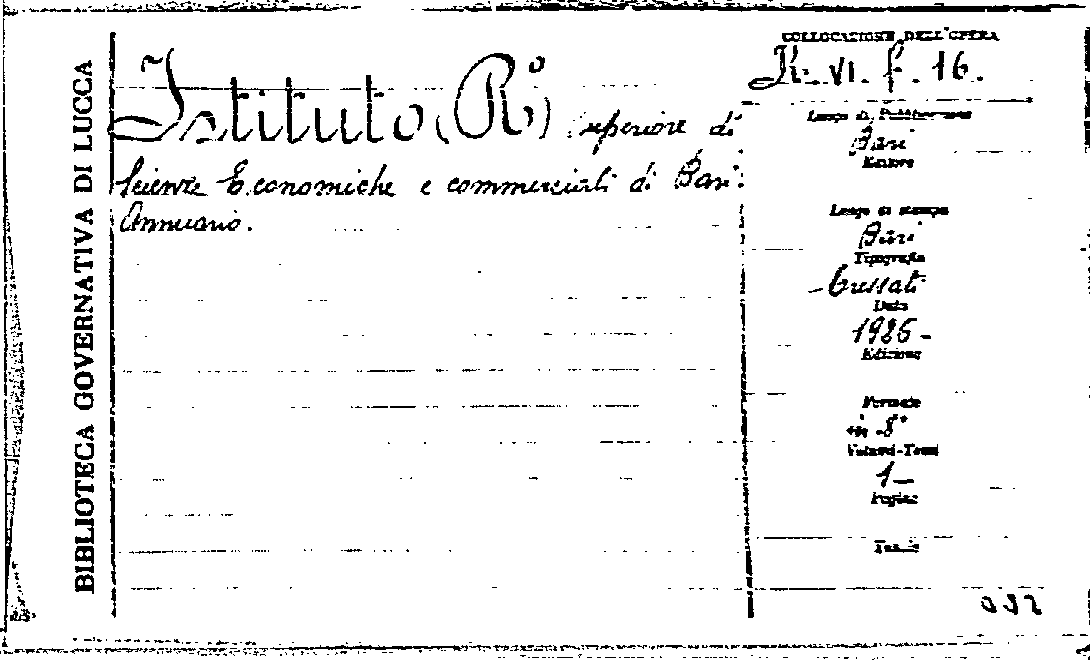 BIBLIOTECA GOVERNATIVA DI LUCCA
Istituto (R°) Superiore di
Scienze Economiche e commerciali di Bari.
Annuario.
COLLOCAZIONE DELL'OPERA
VI. f. 16.
Luogo di Pubblicazione
Bari
Editore
Luogo di stampa
Bari
Tipografia
Cressati
Data
1926 -
Edizione
Formato
in 8°
Volumi-Tomi
1 -
Pagine
Tavole